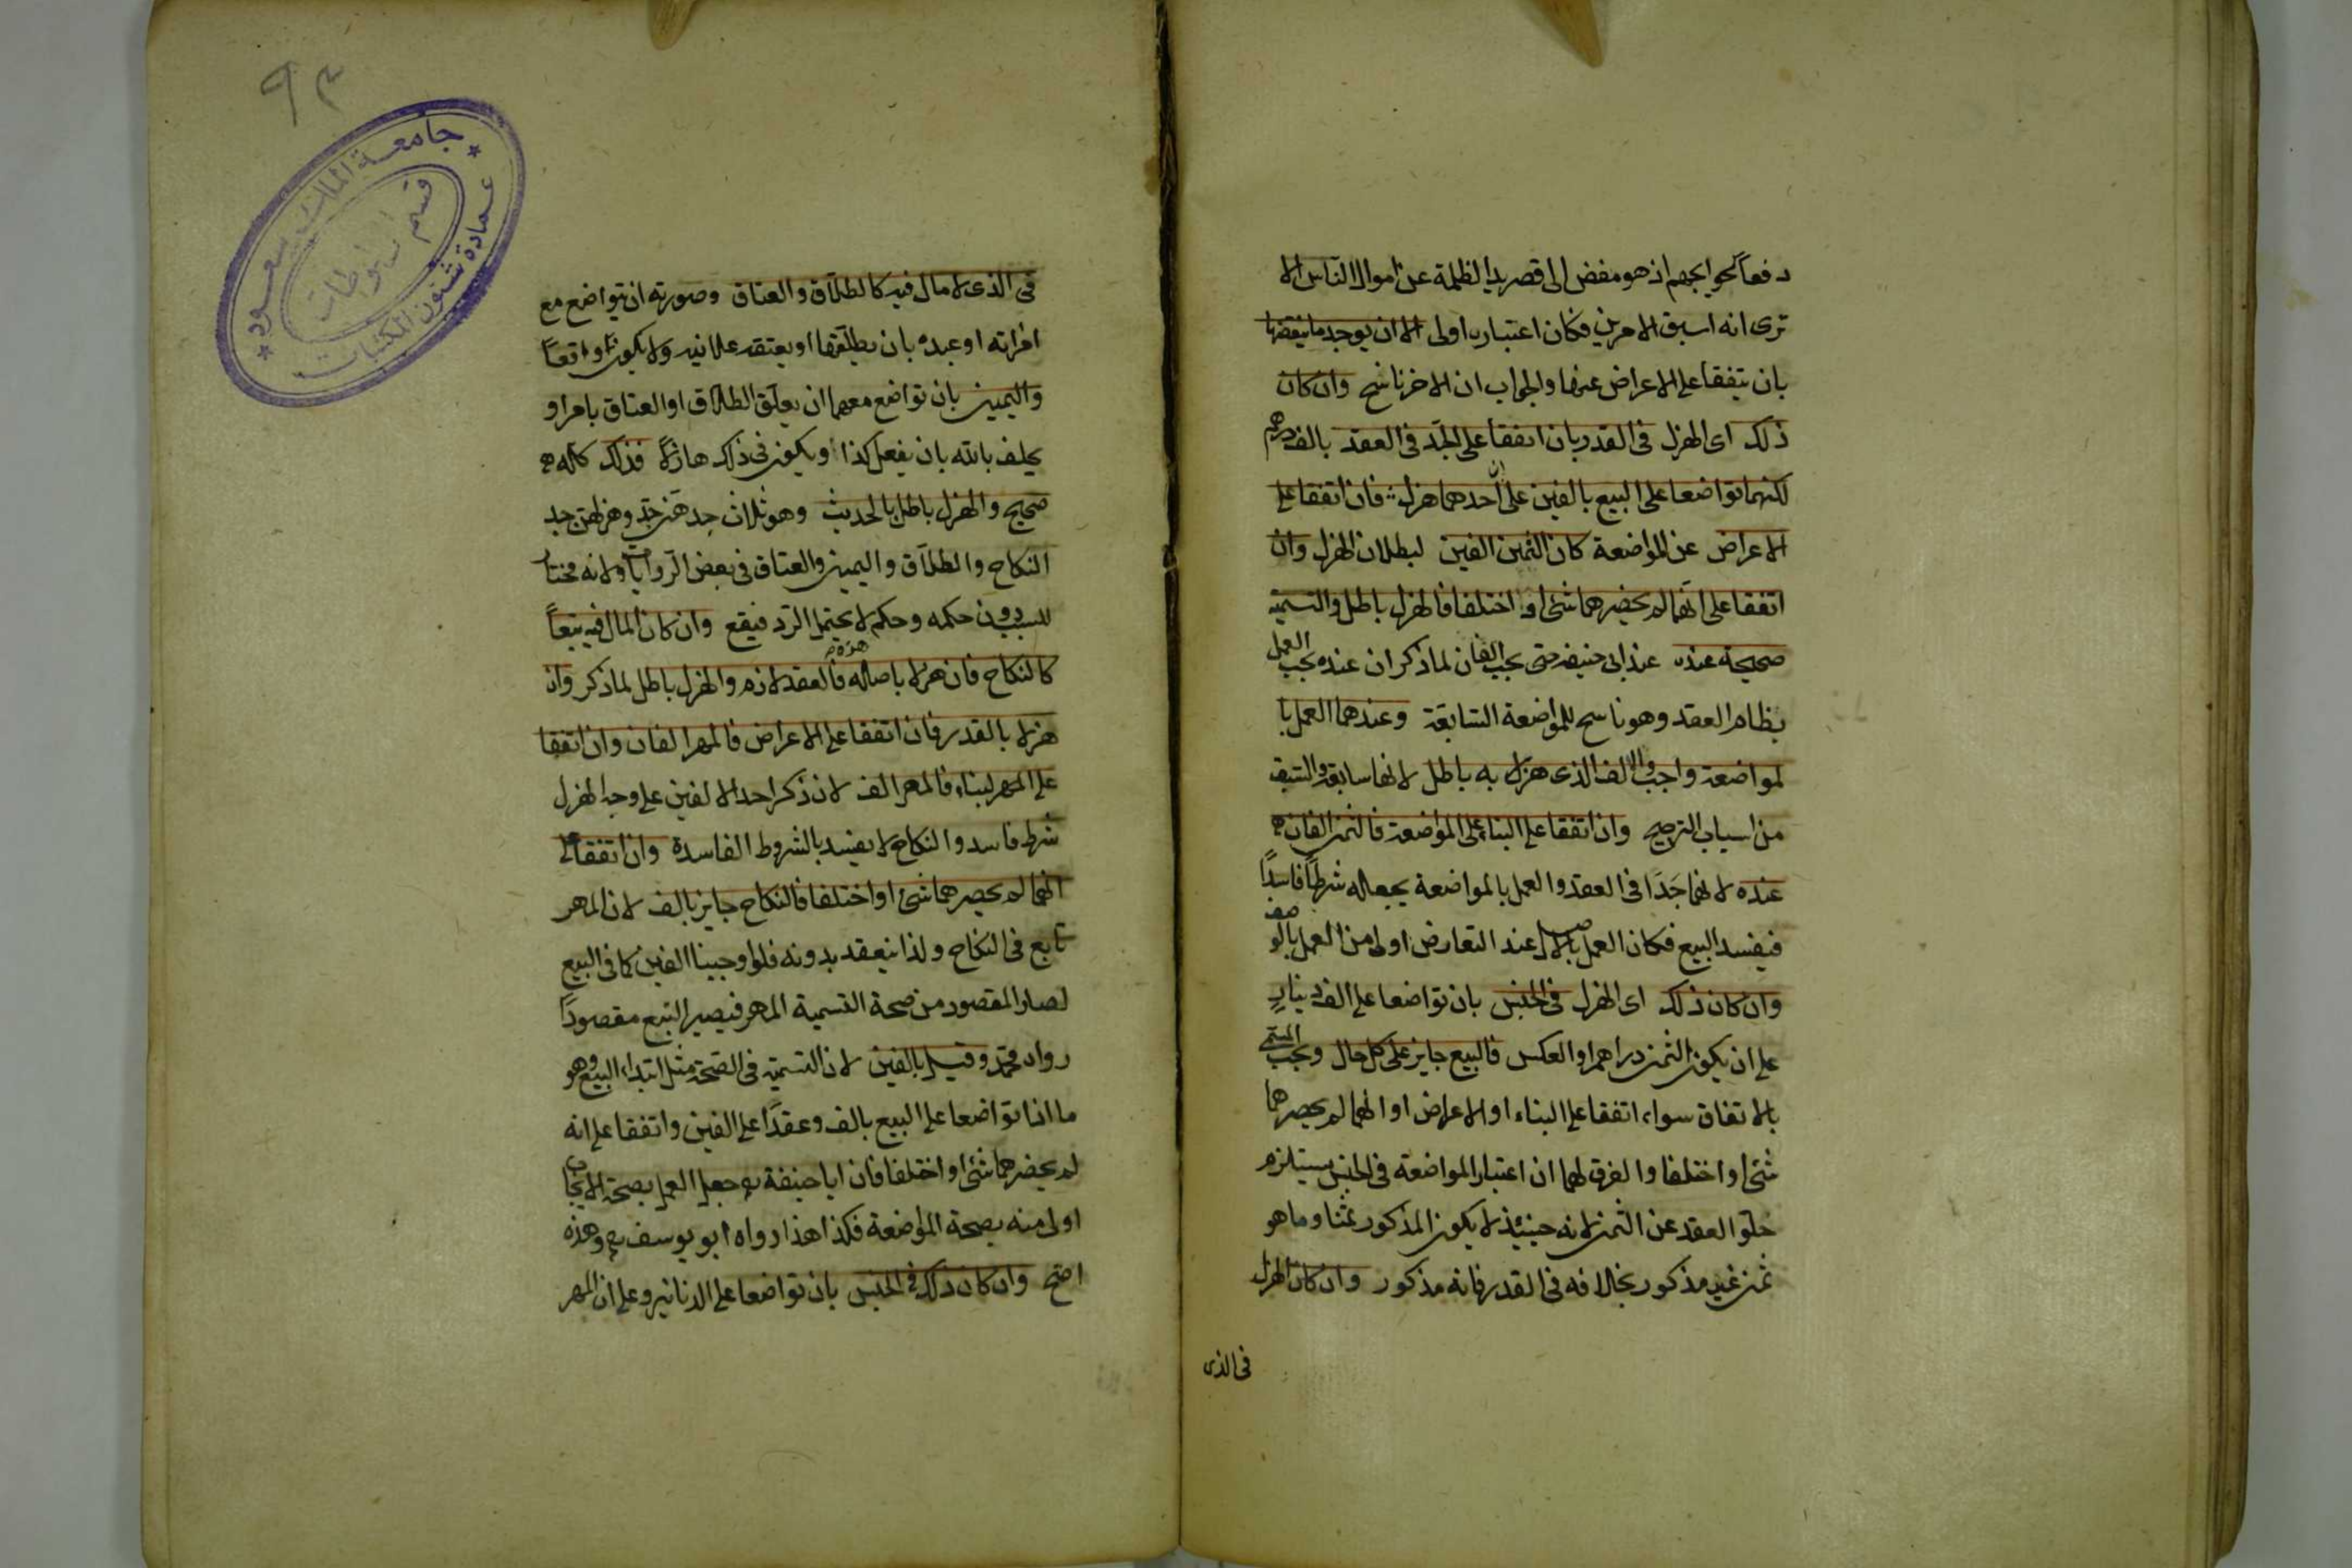 دفعاً لحوايجهم اذ هو مفض الى قصر يد الظلمة عن اموال الناس الا
ترى انه اسبق الامرين فكان اعتباره اولى الا ان يوجد ما ينقضها
بان يتفقا على الاعراض عنها والجواب ان الاخر ناسخ وان كان
ذلك اى الهزل فى القدر بان اتفقا على الجد فى العقد بالف درهم
لكنهما تواضعا على البيع بالفين على ان احدهما هزل فان اتفقا على
الاعراض عن المواضعة كان الثمن الفين لبطلان الهزل وان
اتفقا على انهما لم يحضرهما شئ او اختلفا فالهزل باطل والتسمية
صحيحة عنده عند ابى حنيفه حتى يجب الفان لما ذكر ان عنده يجب العمل
بظاهر العقد وهو ناسخ للمواضعة السابقة وعندهما العمل با
لمواضعة واجب والالف الذى هزلا به باطل لانها سابقة والسبق
من اسباب الترجيح وان اتفقا على البناء على المواضعة فالثمن الفان
عنده لانهما جَدّا فى العقد والعمل بالمواضعة يجعله شرطاً فاسداً
فيفسد البيع فكان العمل بالاصل عند التعارض اولى من العمل بالوصف
وان كان ذلك اى الهزل فى الجنس بان تواضعا على الف دينارٍ
على ان يكون الثمن دراهم او العكس فالبيع جايز على كل حال ويجب المسمى
بالاتفاق سواء اتفقا على البناء او الاعراض او انهما لم يحضرهما
شئ او اختلفا والفرق لهما ان اعتبار المواضعة فى الجنس يستلزم
خلو العقد عن الثمن لانه حينئذ لا يكون المذكور ثمنا وما هو
ثمن غير مذكور بخلافه فى القدر فانه مذكور وان كان الهزل
فى الذى
٩٣
جامعة الملك سعود
عمادة شئون المكتبات
قسم المخطوطات
فى الذى لا مال فيه كالطلاق والعتاق وصورته ان يتواضع مع
امرأته او عبده بان يطلقها او يعتقه علانيه ولا يكون واقعاً
واليمين بان تواضع معهما ان يعلق الطلاق او العتاق بامر او
يحلف بالله بان يفعل كذا ويكون فى ذلك هازلاً فذلك كله
صحيح والهزل باطل بالحديث وهو ثلاث جدهن جد وهزلهن جد
النكاح والطلاق واليمين والعتاق فى بعض الروايات ولانه مختار
للسبب دون حكمه وحكمه لا يحتمل الرد فيقع وان كان المال فيه تبعاً
كالنكاح فان هزلا باصله فالعقد لازم والهزل باطل لما ذكر وان
هزلا بالقدر فان اتفقا على الاعراض فالمهر الفان وان اتفقا
على البناء فالمهر الف لان ذكر احد الالفين على وجه الهزل
شرط فاسد والنكاح لا يفسد بالشروط الفاسدة وان اتفقا على
انهما لم يحضرهما شئ او اختلفا فالنكاح جايز بالف لان المهر
تابع فى النكاح ولذا ينعقد بدونه فلو اوجبنا الفين كما فى البيع
لصار المقصود من صحة التسمية المهر فيصير التبع مقصوداً
رواه محمد وقيل بالفين لان التسمية فى الصحة مثل ابتداء البيع وهو
ما اذا تواضعا على البيع بالف وعقدا على الفين واتفقا على انه
لم يحضرهما شئ او اختلفا فان ابا حنيفة جعل العمل بصحة الايجاب
اولى منه بصحة المواضعة فكذا هذا رواه ابو يوسف وهذه
اصح وان كان ذلك فى الجنس بان تواضعا على الدنانير وعلى ان المهر